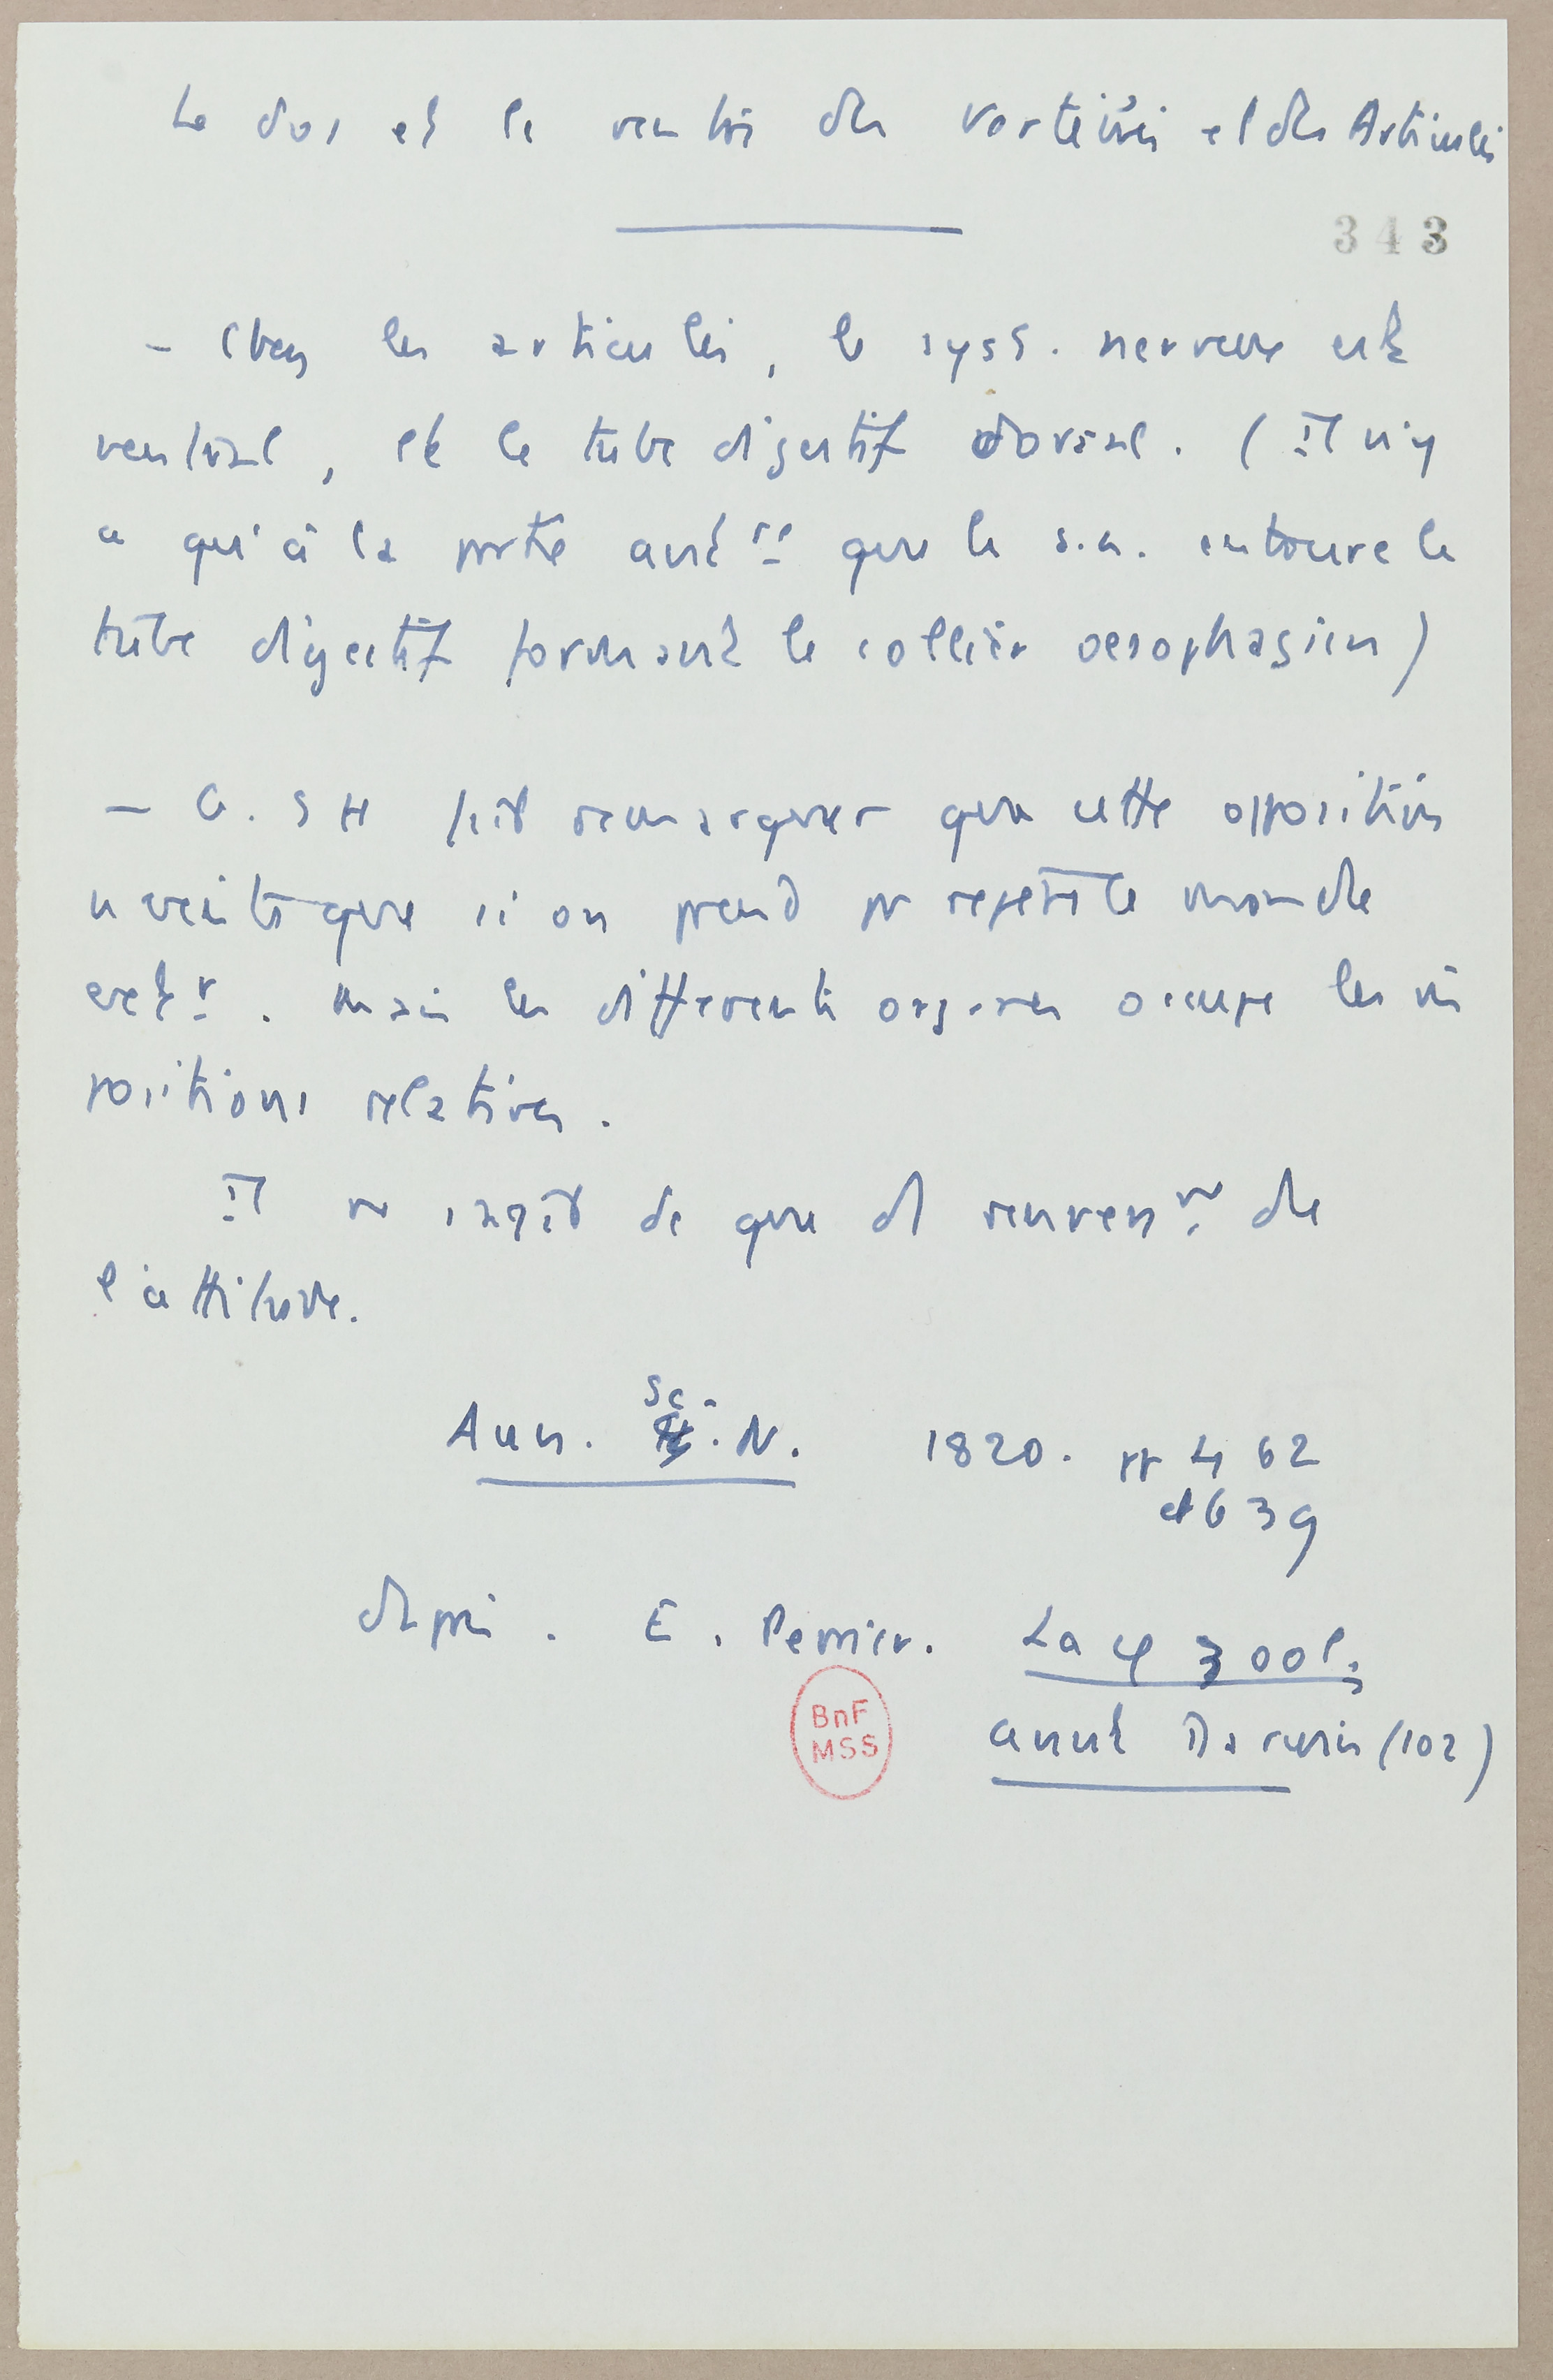 Le dos et le ventre des vertébrés et des Articulés
343
– Chez les articulés, le syst. nerveux est
ventral, et le tube digestif dorsal. (Il n'y
a qu'à la partie antre que le s.n. entoure le
tube digestif formant le collier oesophagien)
– G. S H fait remarquer que cette opposition
n'existe que si on prend pr repère le monde
extr. Mais les différents organes occupe les m̂
positions relatives.
Il ne s'agit de que d renversnt de
l'attitude.
Ann. Sc. N. 1820. pp 462
et 639
depris. E. Perrier. La φ zoolg
avant Darwin (102)
BnF
MSS